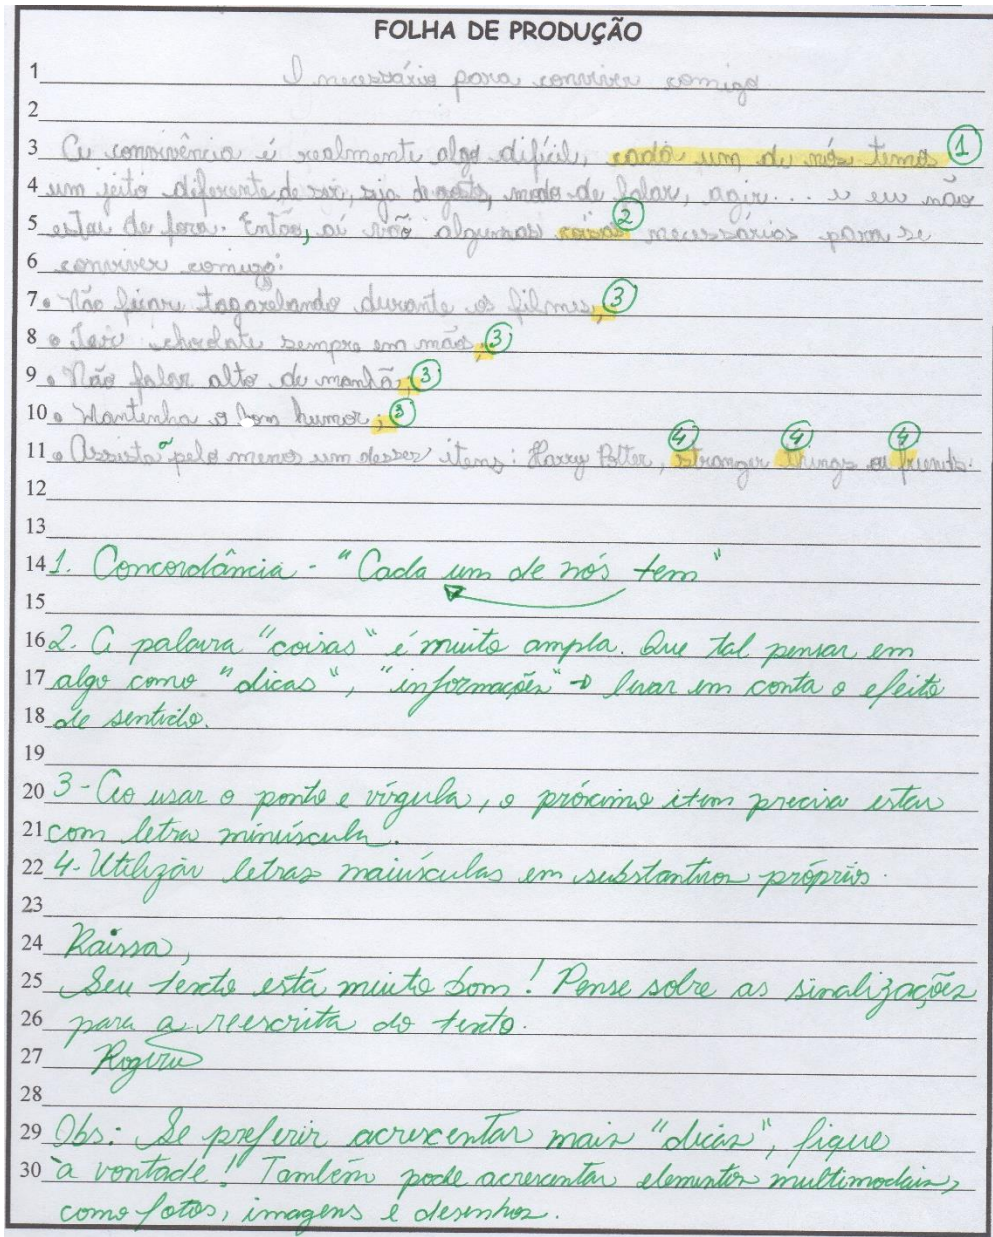 FOLHA DE PRODUÇÃO
1 O necessário para conviver comigo
2
3 A convivência é realmente algo difícil, cada um de nós temos 1
4 um jeito diferente de ser, seja de gosto, modo de falar, agir... e eu não
5 estou de fora. Então, aí vão algumas coisas 2 necessárias para se
6 conviver comigo:
7 • Não ficar tagarelando durante os filmes; 3
8 • Ter chocolate sempre em mãos; 3
9 • Não falar alto de manhã; 3
10 • Mantenha o bom humor; 3
11 • Assista a pelo menos um desses itens: Harry Potter, 4 stranger 4 things ou 4 friends.
12
13
14 1. Concordância - "Cada um de nós tem"
15
16 2. A palavra "coisas" é muito ampla. Que tal pensar em
17 algo como "dicas", "informações" → levar em conta o efeito
18 de sentido.
19
20 3 - Ao usar o ponto e vírgula, o próximo item precisa estar
21 com letra minúscula.
22 4 - Utilizar letras maiúsculas em substantivos próprios.
23
24 Raissa,
25 Seu texto está muito bom! Pense sobre as sinalizações
26 para a reescrita do texto.
27
28
29 Obs: Se preferir acrescentar mais "dicas", fique
30 à vontade! Também pode acrescentar elementos multimodais,
como fotos, imagens e desenhos.